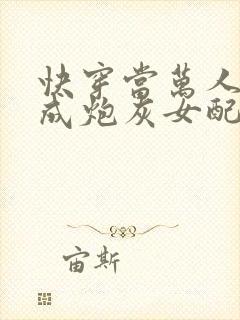 快穿當萬人
成炮灰女配
宙斯